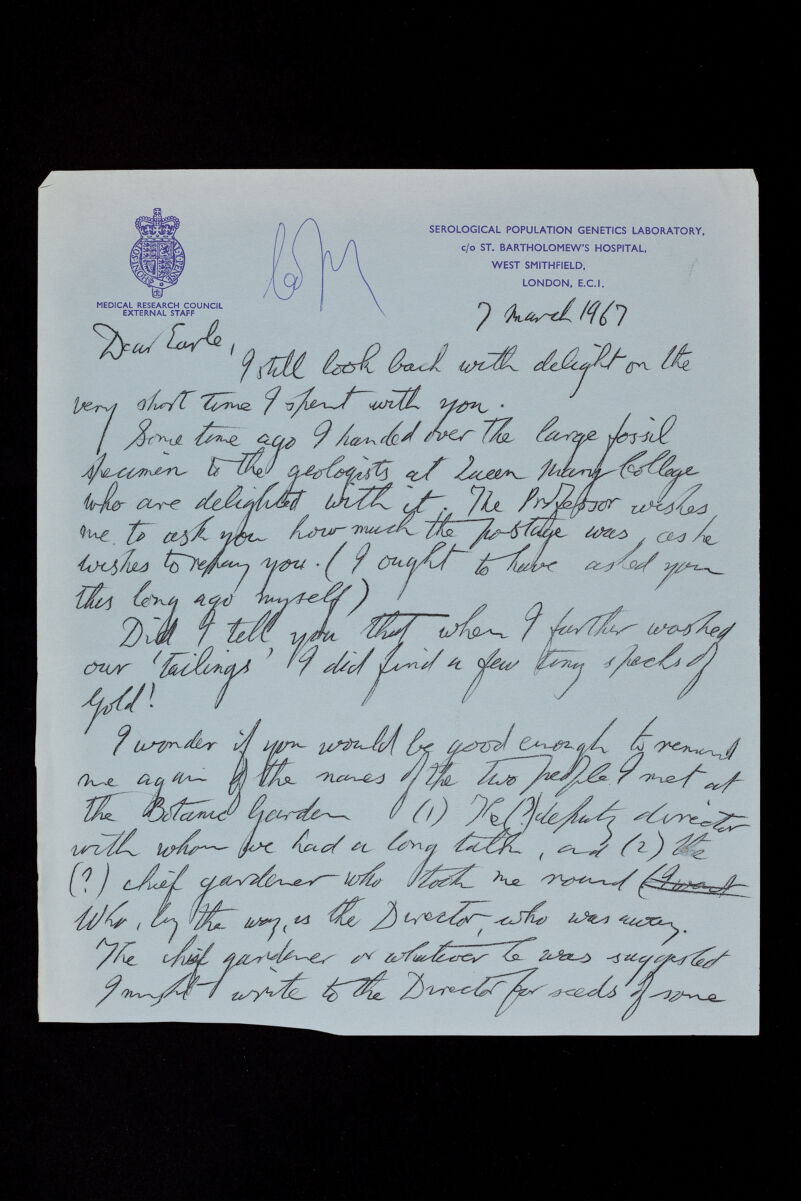 SEROLOGICAL POPULATION GENETICS LABORATORY,
c/o ST. BARTHOLOMEW'S HOSPITAL,
WEST SMITHFIELD,
LONDON, E.C.1.
MEDICAL RESEARCH COUNCIL
EXTERNAL STAFF
7 March 1967
Dear Earle,
I still look back with delight on the
very short time I spent with you.
Some time ago I handed over the large fossil
specimen to the geologists at Queen Mary College
who are delighted with it. The Professor wishes
me to ask you how much the postage was, as he
wishes to repay you. (I ought to have asked you
this long ago myself)
Did I tell you that when I further washed
our 'tailings' I did find a few tiny specks of
gold!
I wonder if you would be good enough to remind
me again of the names of the two people I met at
the Botanic Garden (1) The (?) deputy director
with whom we had a long talk, and (2) the
(?) chief gardener who took me round (I want
Who, by the way, is the Director, who was away.
The chief gardener or whatever he was suggested
I might write to the Director for seeds of some